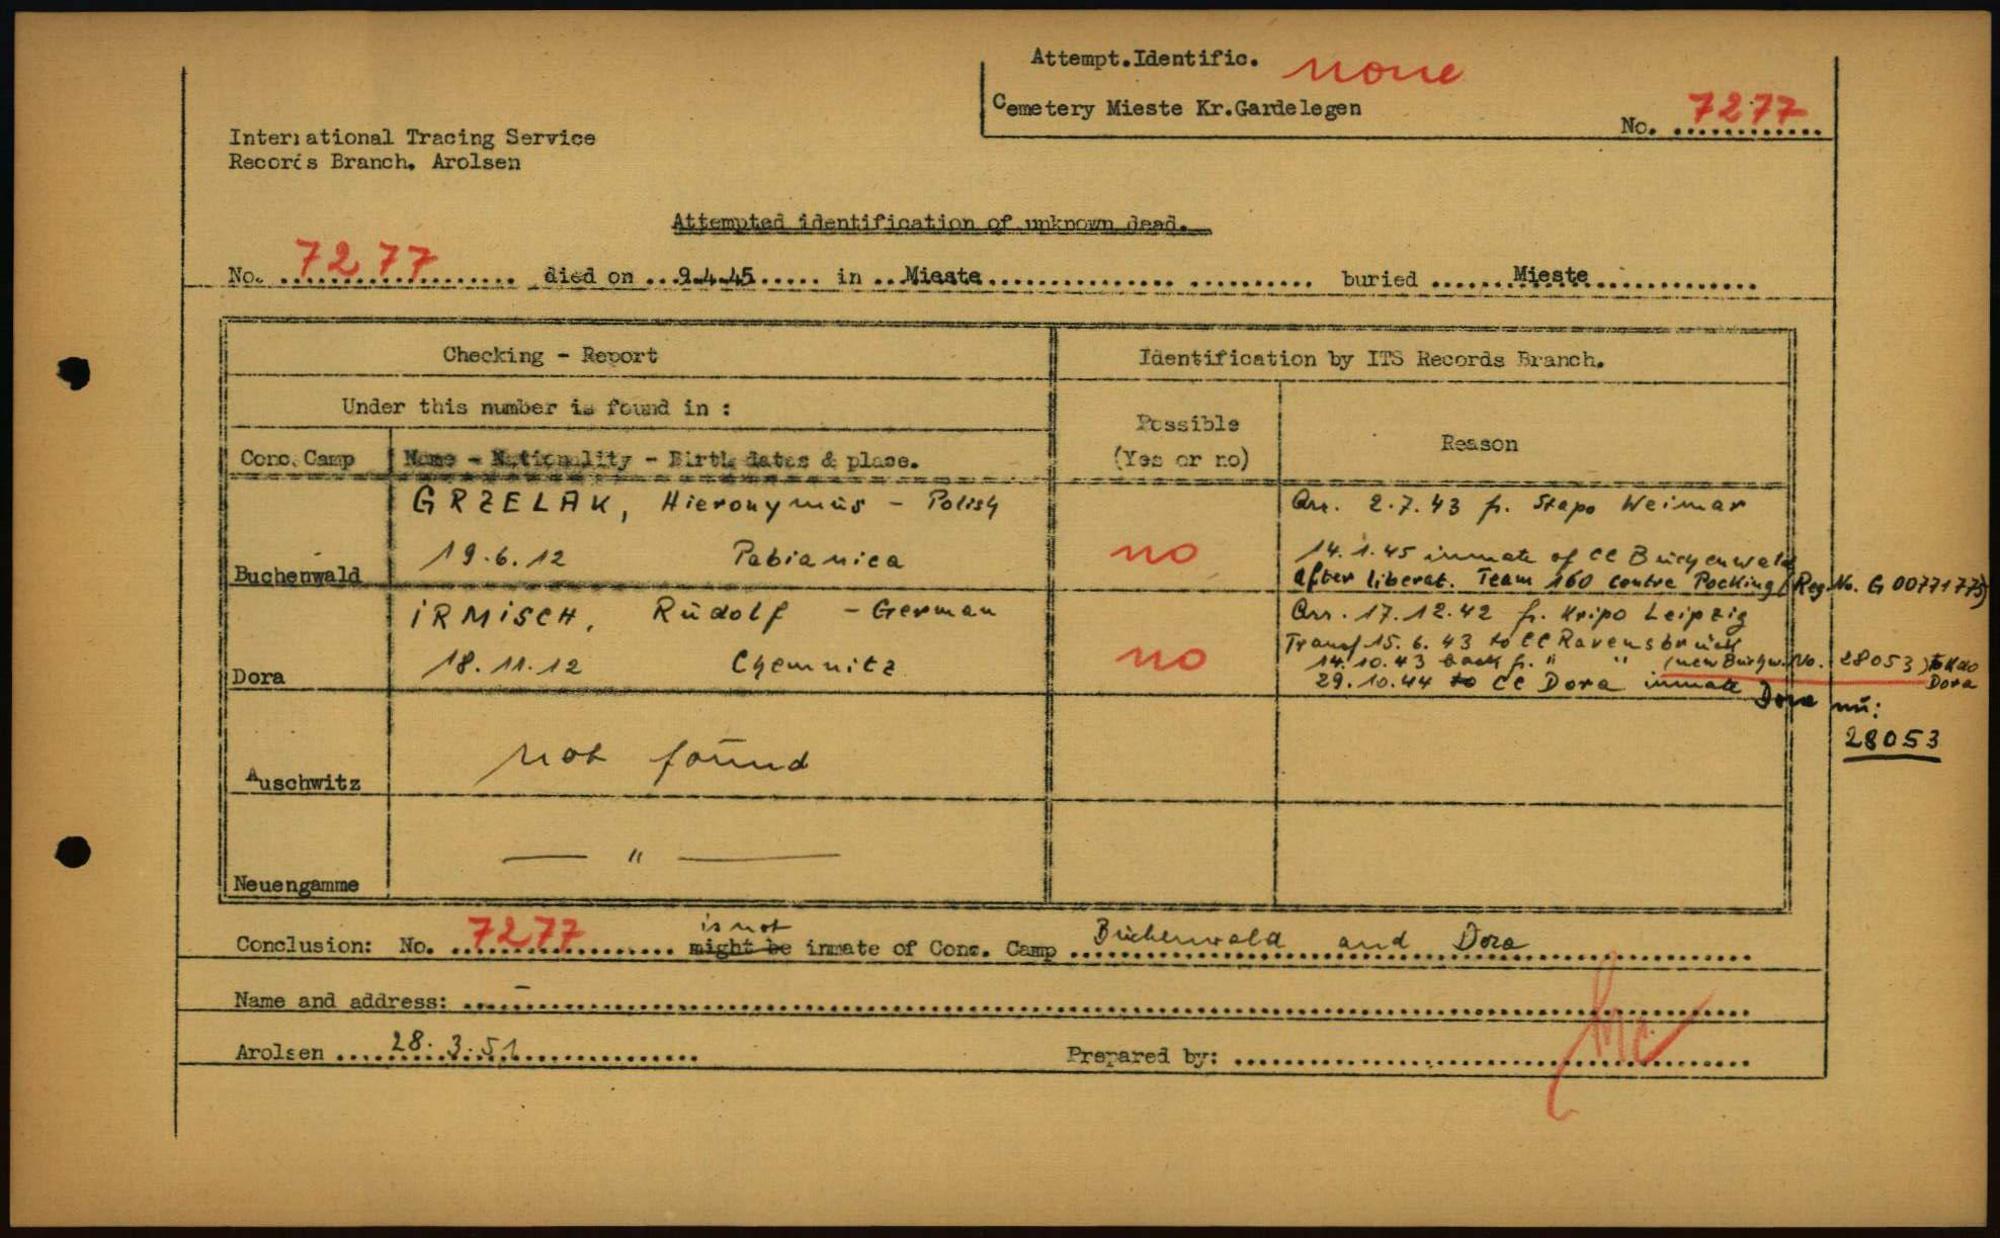 Attempt.Identific. none
Cemetery Mieste Kr.Gardelegen
No. 7277
International Tracing Service
Records Branch. Arolsen
Attempted identification of unknown dead.
No. 7277 died on 9.4.45 in Mieste buried Mieste
Checking - Report
Identification by ITS Records Branch.
Under this number is found in :
Possible
(Yes or no)
Reason
Conc. Camp
Name - Nationality - Birth dates & place.
GRZELAK, Hieronymus - Polish
Arr. 2.7.43 fr. Stapo Weimar
19.6.12 Pabianica
no
14.1.45 inmate of CC Buchenwald
Buchenwald
after liberat. Team 160 centre Pocking (Reg. No. G 00771775)
IRMISCH, Rudolf - German
Arr. 17.12.42 fr. Kripo Leipzig
Transf 15.6.43 to CC Ravensbrück
18.11.12 Chemnitz
no
14.10.43 back fr. " " (new Buchw. No. 28053) to Kdo
Dora
Dora
29.10.44 to CC Dora inmate
Dora nu:
28053
not found
Auschwitz
— " —
Neuengamme
Conclusion: No. 7277 might be is not inmate of Conc. Camp Buchenwald and Dora
Name and address: -
Arolsen 28.3.51
Prepared by: